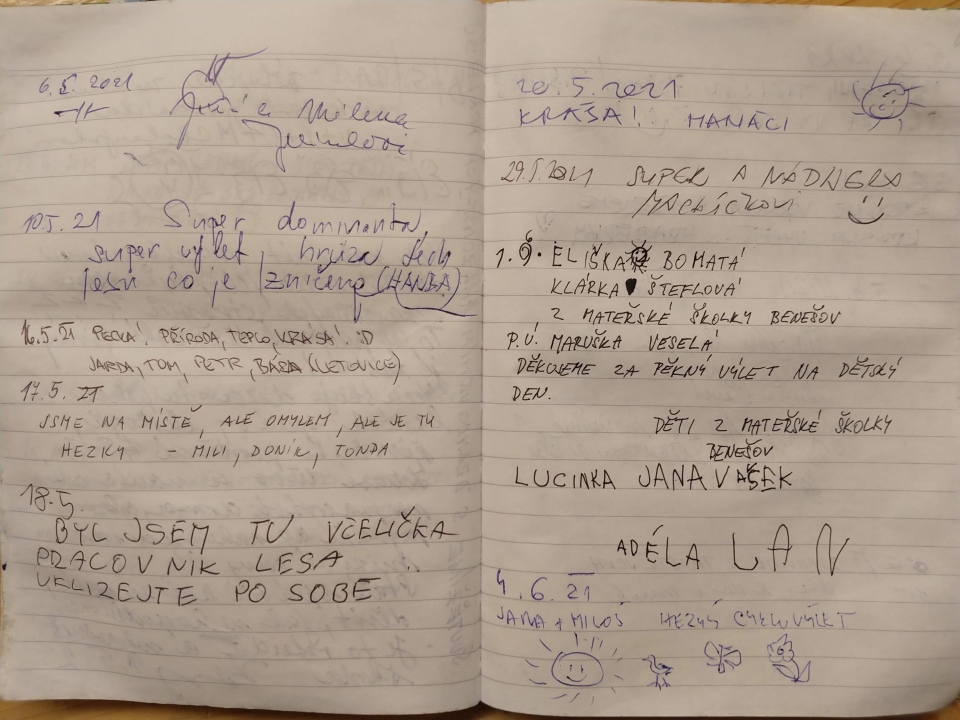 6.5. 2021
Milena
10.5.21 Super dominanta,
super výlet, hrůza těch
jenž co je zničeno (HANBA)
16.5.21 PECKA! PŘÍRODA, TEPLO, KRÁSA! :D
JARDA, TOM, PETR, BÁRA (LETOVICE)
17.5. 21
JSME NA MÍSTĚ, ALE OMYLEM, ALE JE TU
HEZKY - MILI, DONÍK, TONDA
18.5.
BYL JSEM TU VČELIČKA
PRACOVNIK LESA
UKLIZEJTE PO SOBĚ
20.5.2021
KRÁSA! HANÁCI
29.5.2021 SUPER A NÁDHERA
MACHÁČKOVI
1.6. ELIŠKA BOMATÁ
KLÁRKA ŠTEFLOVÁ
Z MATEŘSKÉ ŠKOLKY BENEŠOV
P.U. MARUŠKA VESELÁ
DĚKUJEME ZA PĚKNÝ VÝLET NA DĚTSKÝ
DEN.
DĚTI Z MATEŘSKÉ ŠKOLKY
BENEŠOV
LUCINKA JANA VAŠEK
ADÉLA LAN
4.6.21
JANA + MILOŠ HEZKÝ CYKLOVÝLET